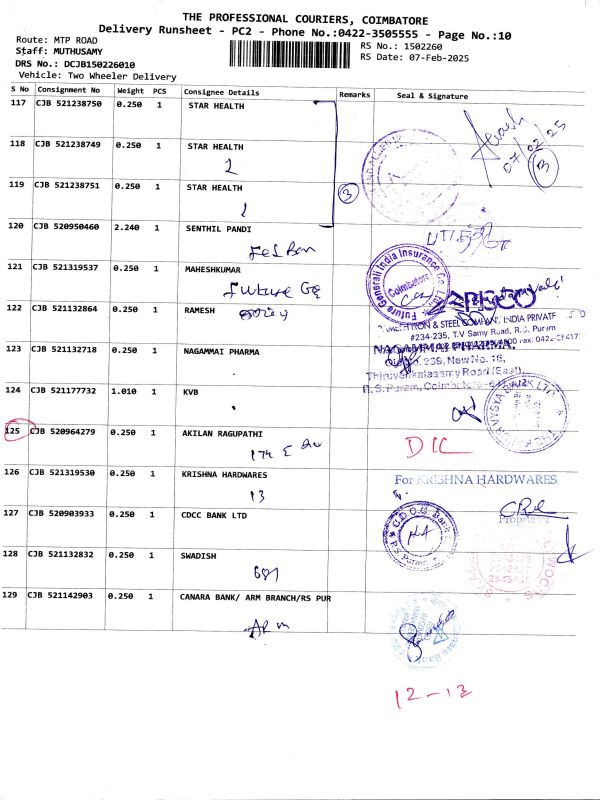 THE PROFESSIONAL COURIERS, COIMBATORE
Delivery Runsheet - PC2 - Phone No.:0422-3505555 - Page No.:10
Route: MTP ROAD
RS No.: 1502260
Staff: MUTHUSAMY
RS Date: 07-Feb-2025
DRS No.: DCJB150226010
Vehicle: Two Wheeler Delivery
S No Consignment No Weight PCS Consignee Details Remarks Seal & Signature
117 CJB 521238750 0.250 1 STAR HEALTH
07/02/25
118 CJB 521238749 0.250 1 STAR HEALTH
3
119 CJB 521238751 0.250 1 STAR HEALTH
3
120 CJB 520950460 2.240 1 SENTHIL PANDI
121 CJB 521319537 0.250 1 MAHESHKUMAR
Future Generali India Insurance Co. Ltd.
Coimbatore
Future
122 CJB 521132864 0.250 1 RAMESH
& STEEL COMPANY INDIA PRIVATE
#234-235, T.V Samy Road, R.S. Puram
123 CJB 521132718 0.250 1 NAGAMMAI PHARMA
NAGAMMAI PHARMA,
239, New No. 16,
Thiruvenkatasamy Road (East),
R.S. Puram, Coimbatore
124 CJB 521177732 1.010 1 KVB
VYSYA BANK LTD
125 CJB 520964279 0.250 1 AKILAN RAGUPATHI
174 E
126 CJB 521319530 0.250 1 KRISHNA HARDWARES
For KRISHNA HARDWARES
13
Proprietor
127 CJB 520903933 0.250 1 CDCC BANK LTD
128 CJB 521132832 0.250 1 SWADISH
129 CJB 521142903 0.250 1 CANARA BANK/ ARM BRANCH/RS PUR
ARM
12-13